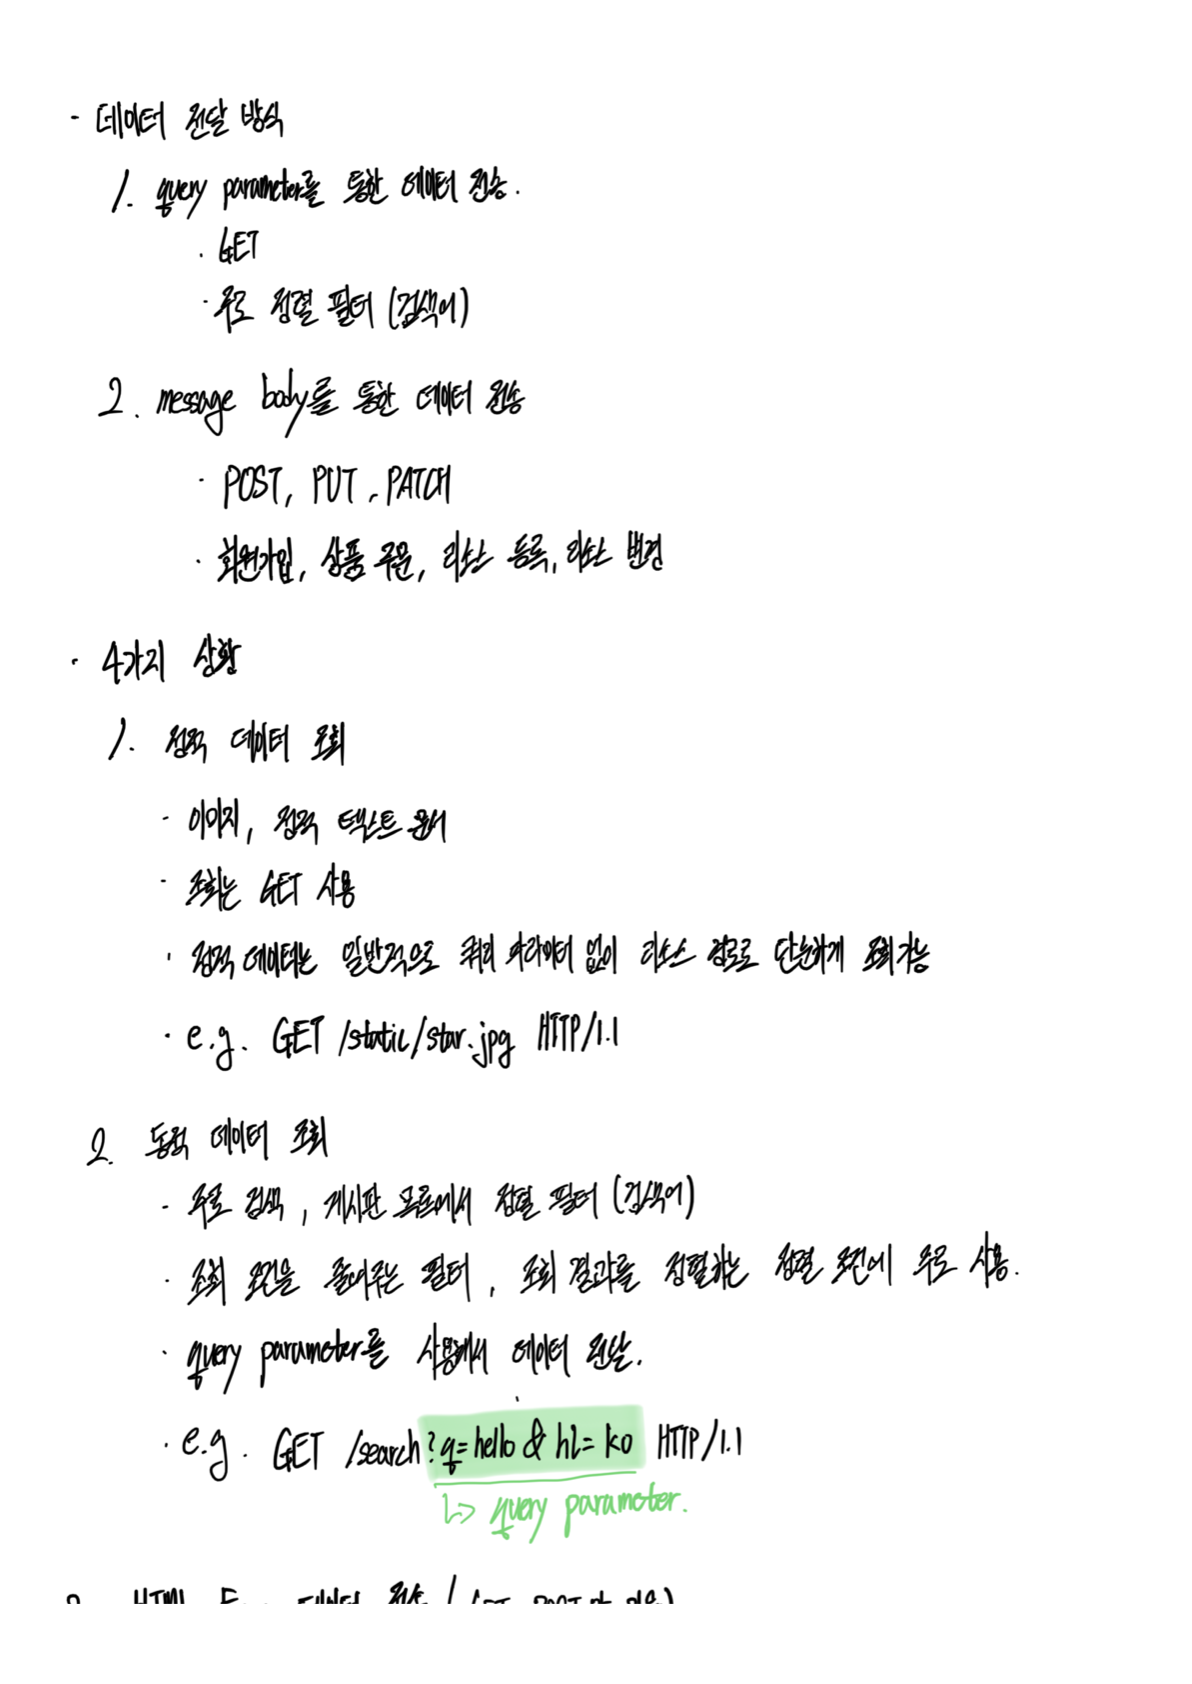 · 데이터 전달 방식
1. query parameter를 통한 데이터 전송.
· GET
· 주로 정렬 필터 (검색어)
2. message body를 통한 데이터 전송
· POST, PUT, PATCH
· 회원가입, 상품 주문, 리소스 등록, 리소스 변경
· 4가지 상황
1. 정적 데이터 조회
· 이미지, 정적 텍스트 문서
· 조회는 GET 사용
· 정적 데이터는 일반적으로 쿼리 파라미터 없이 리소스 경로로 단순하게 조회 가능
· e.g. GET /static/star.jpg HTTP/1.1
2. 동적 데이터 조회
· 주로 검색, 게시판 목록에서 정렬 필터 (검색어)
· 조회 조건을 줄여주는 필터, 조회 결과를 정렬하는 정렬 조건에 주로 사용.
· query parameter를 사용해서 데이터 전달.
· e.g. GET /search?q=hello & hl=ko HTTP/1.1
↳ query parameter.
HTML 데이터 전송